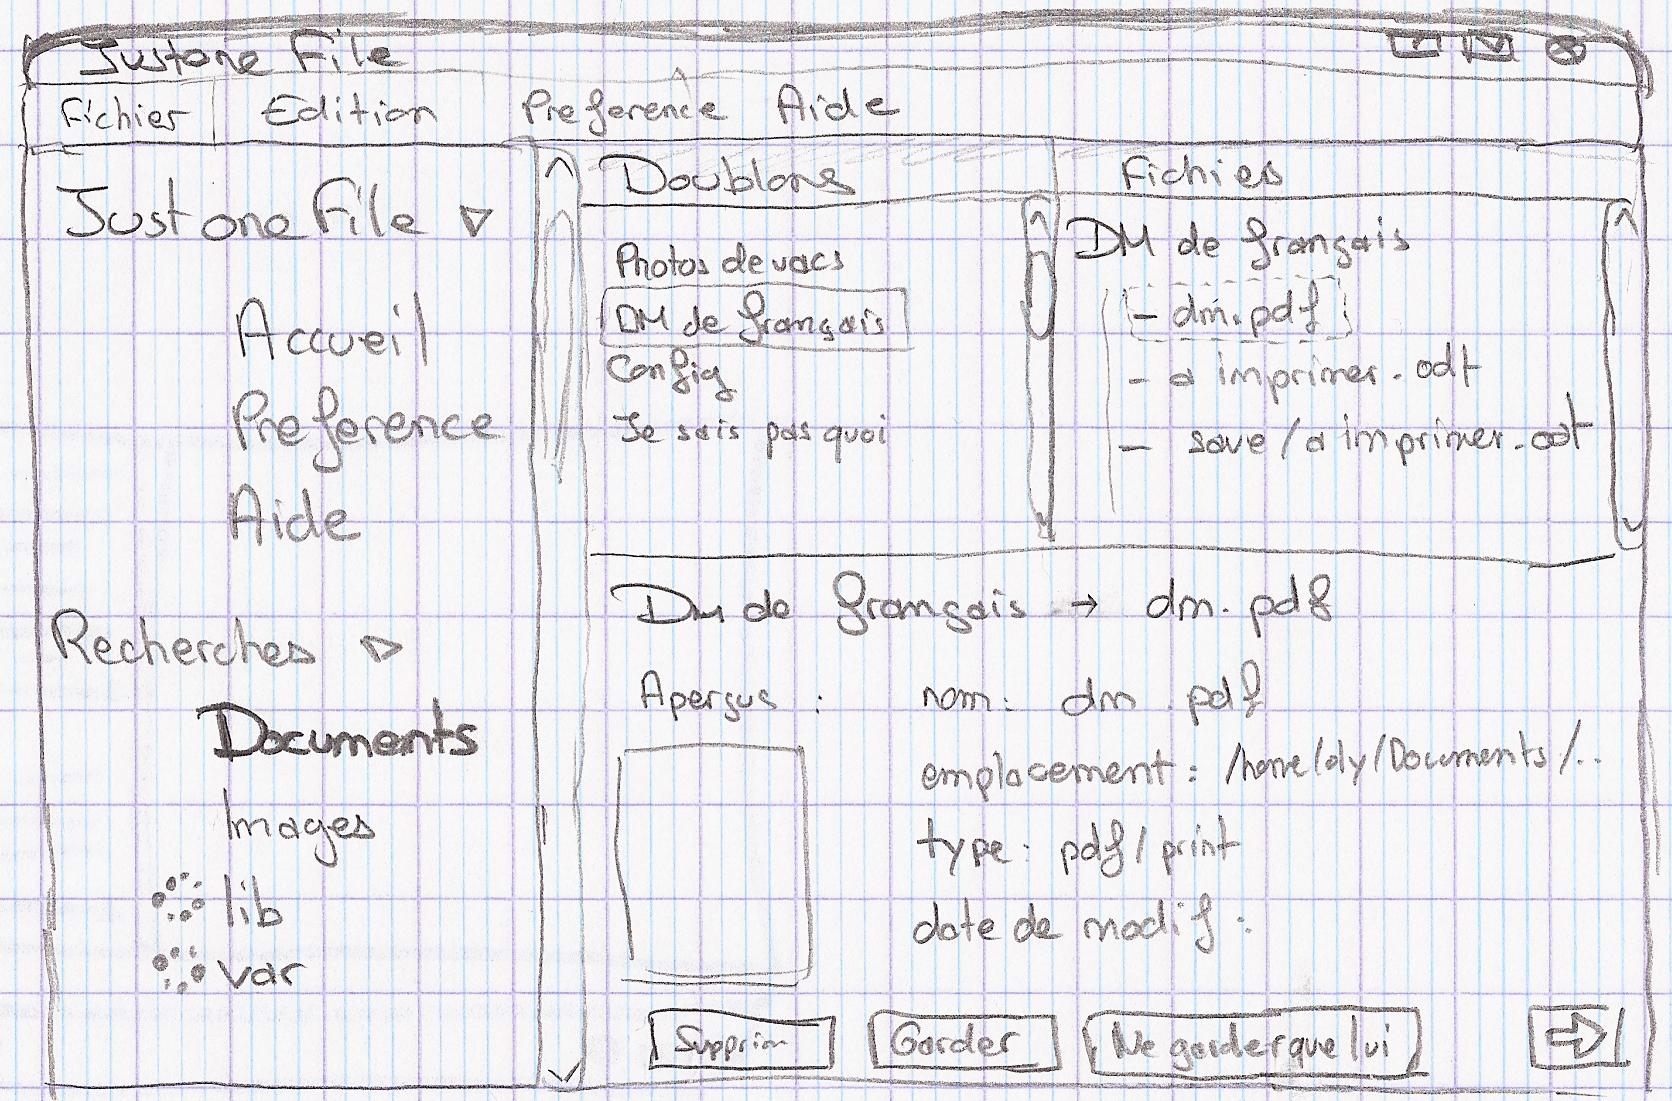 Justone File
Fichier Edition Preference Aide
Just one File
Accueil
Preference
Aide
Recherches
Documents
Images
lib
var
Doublons
Photos de vacs
DM de français
Config
Je sais pas quoi
Fichies
DM de français
- dm.pdf
- a imprimer.odt
- save/a imprimer.odt
DM de français → dm.pdf
Aperçus :
nom: dm.pdf
emplacement: /home/oly/Documents/..
type: pdf/print
date de modif:
Supprim Garder Ne garder que lui